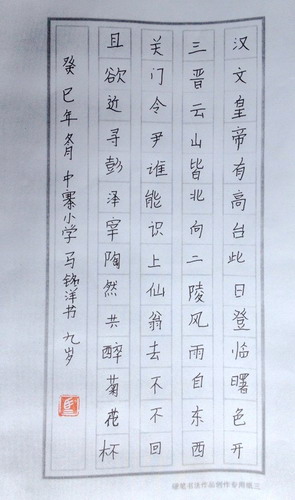 汉文皇帝有高台此日登临曙色开
三晋云山皆北向二陵风雨自东西
关门令尹谁能识上仙翁去不不回
且欲近寻彭泽宰陶然共醉菊花杯
癸巳年冬月中寨小学马锦洋书九岁
硬笔书法作品创作专用纸三